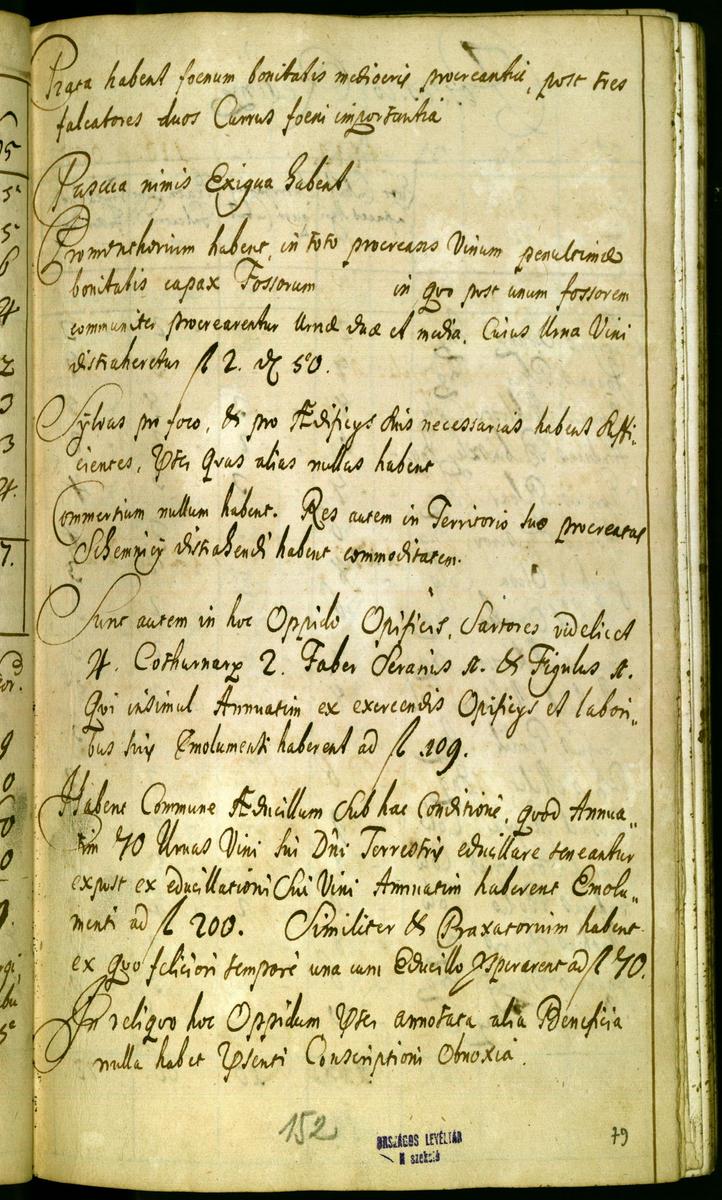 Prata habent foenum bonitatis mediocris procreantia, post tres
falcatores duos Currus foeni importantia
Pascua nimis Exigua habent
Promonthorium habent, in toto procreans Vinum penultimae
bonitatis capax Fossorum in quo post unum fossorem
communiter procrearentur Urnae duae et media. Cuius Urna Vini
distraheretur fl 2. d 50.
Sylvas pro foco, & pro Ædificijs suis necessarias habent suffi-
cientes, pter quas alias nullas habent
Commertium nullum habent. Res autem in Territorio suo procreatas
Schemnicij distrahendi habent commoditatem.
Sunt autem in hoc Oppido Opifices, Sartores videlicet
4. Cothurnarij 2. Faber Serarius 1. & Figulus 1.
Qui insimul Annuatim ex exercendis Opificijs et labori-
bus suis Emolumenti haberent ad fl 109.
Habent Commune Æducillum sub hac Conditione, quod Annua-
tim 70 Urnas Vini sui Dni Terrestris educillare teneantur
expost ex educillationi sui Vini Annuatim haberent Emolu-
menti ad fl 200. Similiter & Braxatorium habent
ex quo feliciori tempore una cum Educillo psperarent ad fl 70.
In reliquo hoc Oppidum pter annotata alia Beneficia
nulla habet psenti Conscriptioni Obnoxia.
152
ORSZÁGOS LEVÉLTÁR
N szekció
79